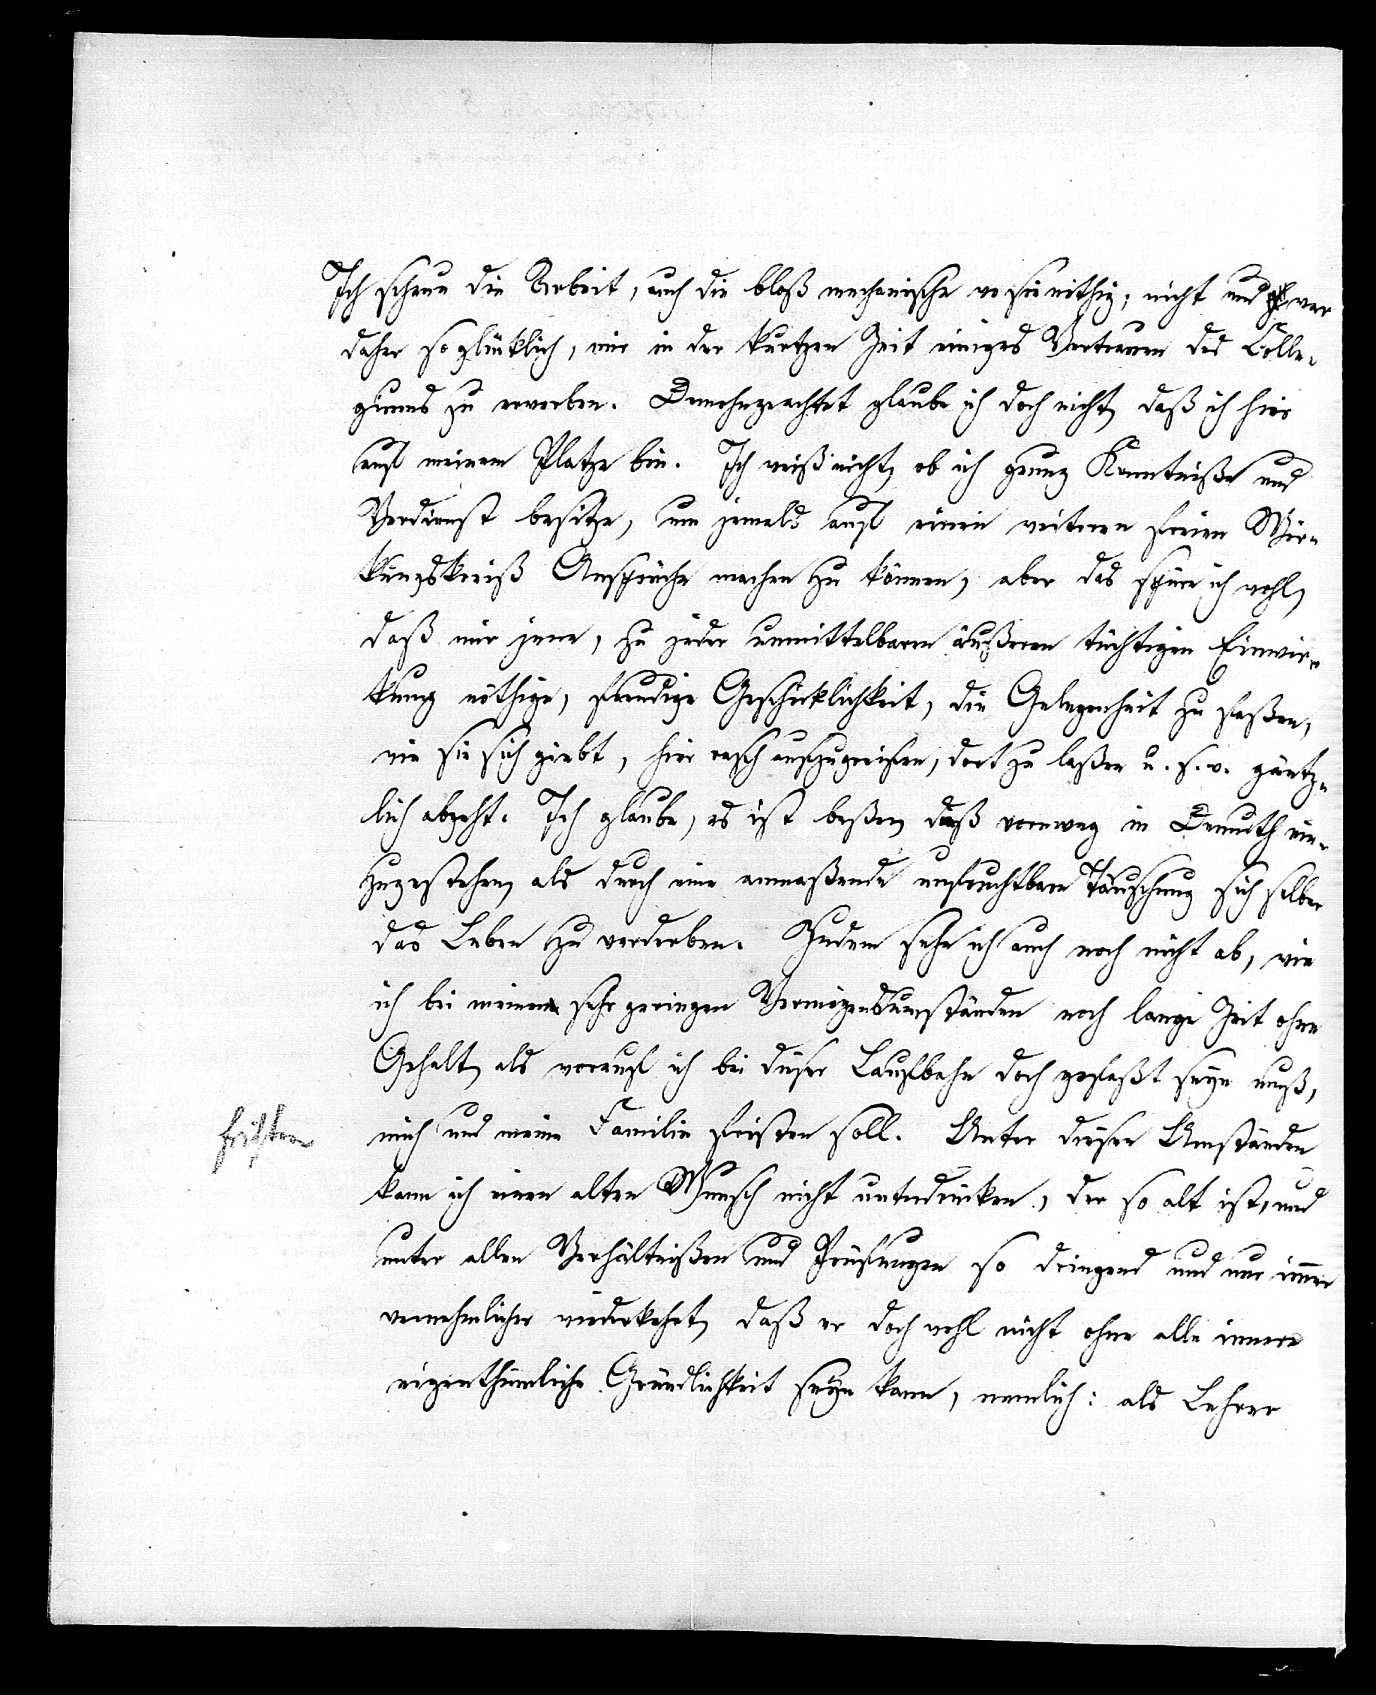 Ich scheue die Arbeit, auch die bloß mechanische wo sie nöthig, nicht und war
daher so glücklich, mir in der kurtzen Zeit einiges Vertrauen des Colle-
giums zu erwerben. Demohngeachtet glaube ich doch nicht, daß ich hier
auf meinem Platze bin. Ich weiß nicht, ob ich genug Kenntniße und
Verdienst besitze, um jemals auf einen weiteren freien Wir-
kungskreiß Ansprüche machen zu können, aber das spüre ich wohl,
daß mir jene, zu jeder unmittelbaren äußeren tüchtigen Einwir-
kung nöthige, freudige Geschicklichkeit, die Gelegenheit zu faßen,
wie sie sich giebt, hier rasch aufzugreifen, dort zu laßen u. s. w. gäntz-
lich abgeht. Ich glaube, es ist beßer, dieß vornweg in Demuth ein-
zugestehen, als durch eine anmaßende unfruchtbare Täuschung sich selber
das Leben zu verderben. Zudem sehe ich auch noch nicht ab, wie
ich bei meinen sehr geringen Vermögensumständen noch lange Zeit ohne
Gehalt, als worauf ich bei dieser Laufbahn doch gefaßt seyn muß,
fristen
mich und meine Familie fristen soll. Unter diesen Umständen
kann ich einen alten Wunsch nicht unterdrücken, der so alt ist, und
unter allen Verhältnißen und Prüfungen so dringend und nur immer
vernehmlicher wiederkehrt, daß er doch wohl nicht ohne alle innere
eigenthümliche Gründlichkeit seyn kann, nemlich: als Lehrer